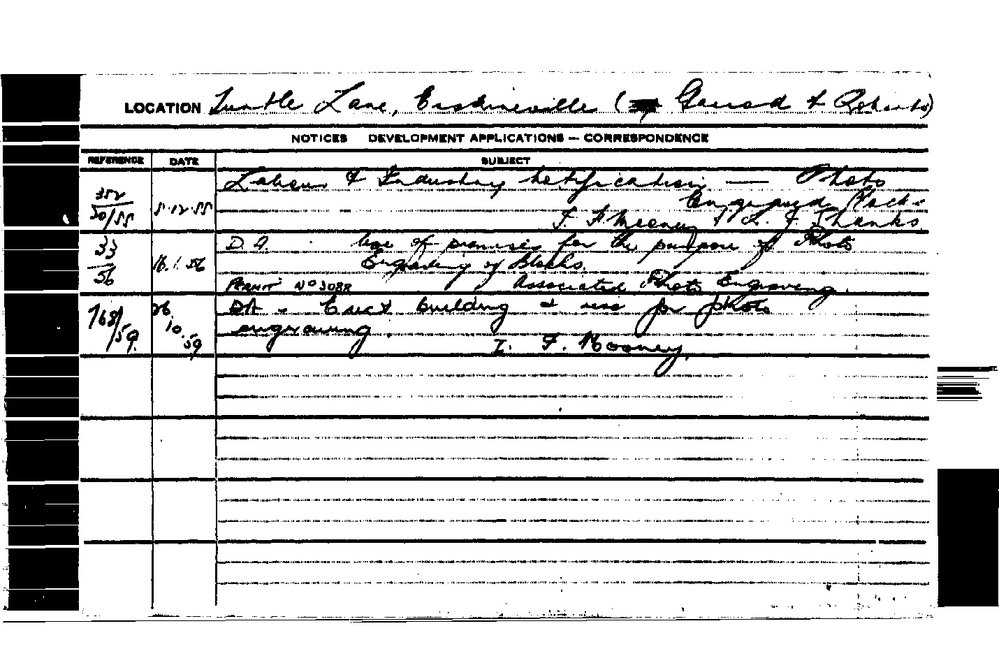 LOCATION Turtle Lane, Erskineville ( Gerrard & Roberts)
NOTICES DEVELOPMENT APPLICATIONS — CORRESPONDENCE
REFERENCE DATE SUBJECT
352 Labour & Industry Notification — Photo
50/55 5.12.55 Engraved Blocks
F. Mooney & L. J. Shanks
33 D.A. Use of premises for the purpose of Photo
56 16.1.56 Engraving of Blocks.
PERMIT No 3088 Associated Photo Engraving.
768/59 26.10.59 DA - Erect building & use for photo
engraving.
I. F. Mooney.